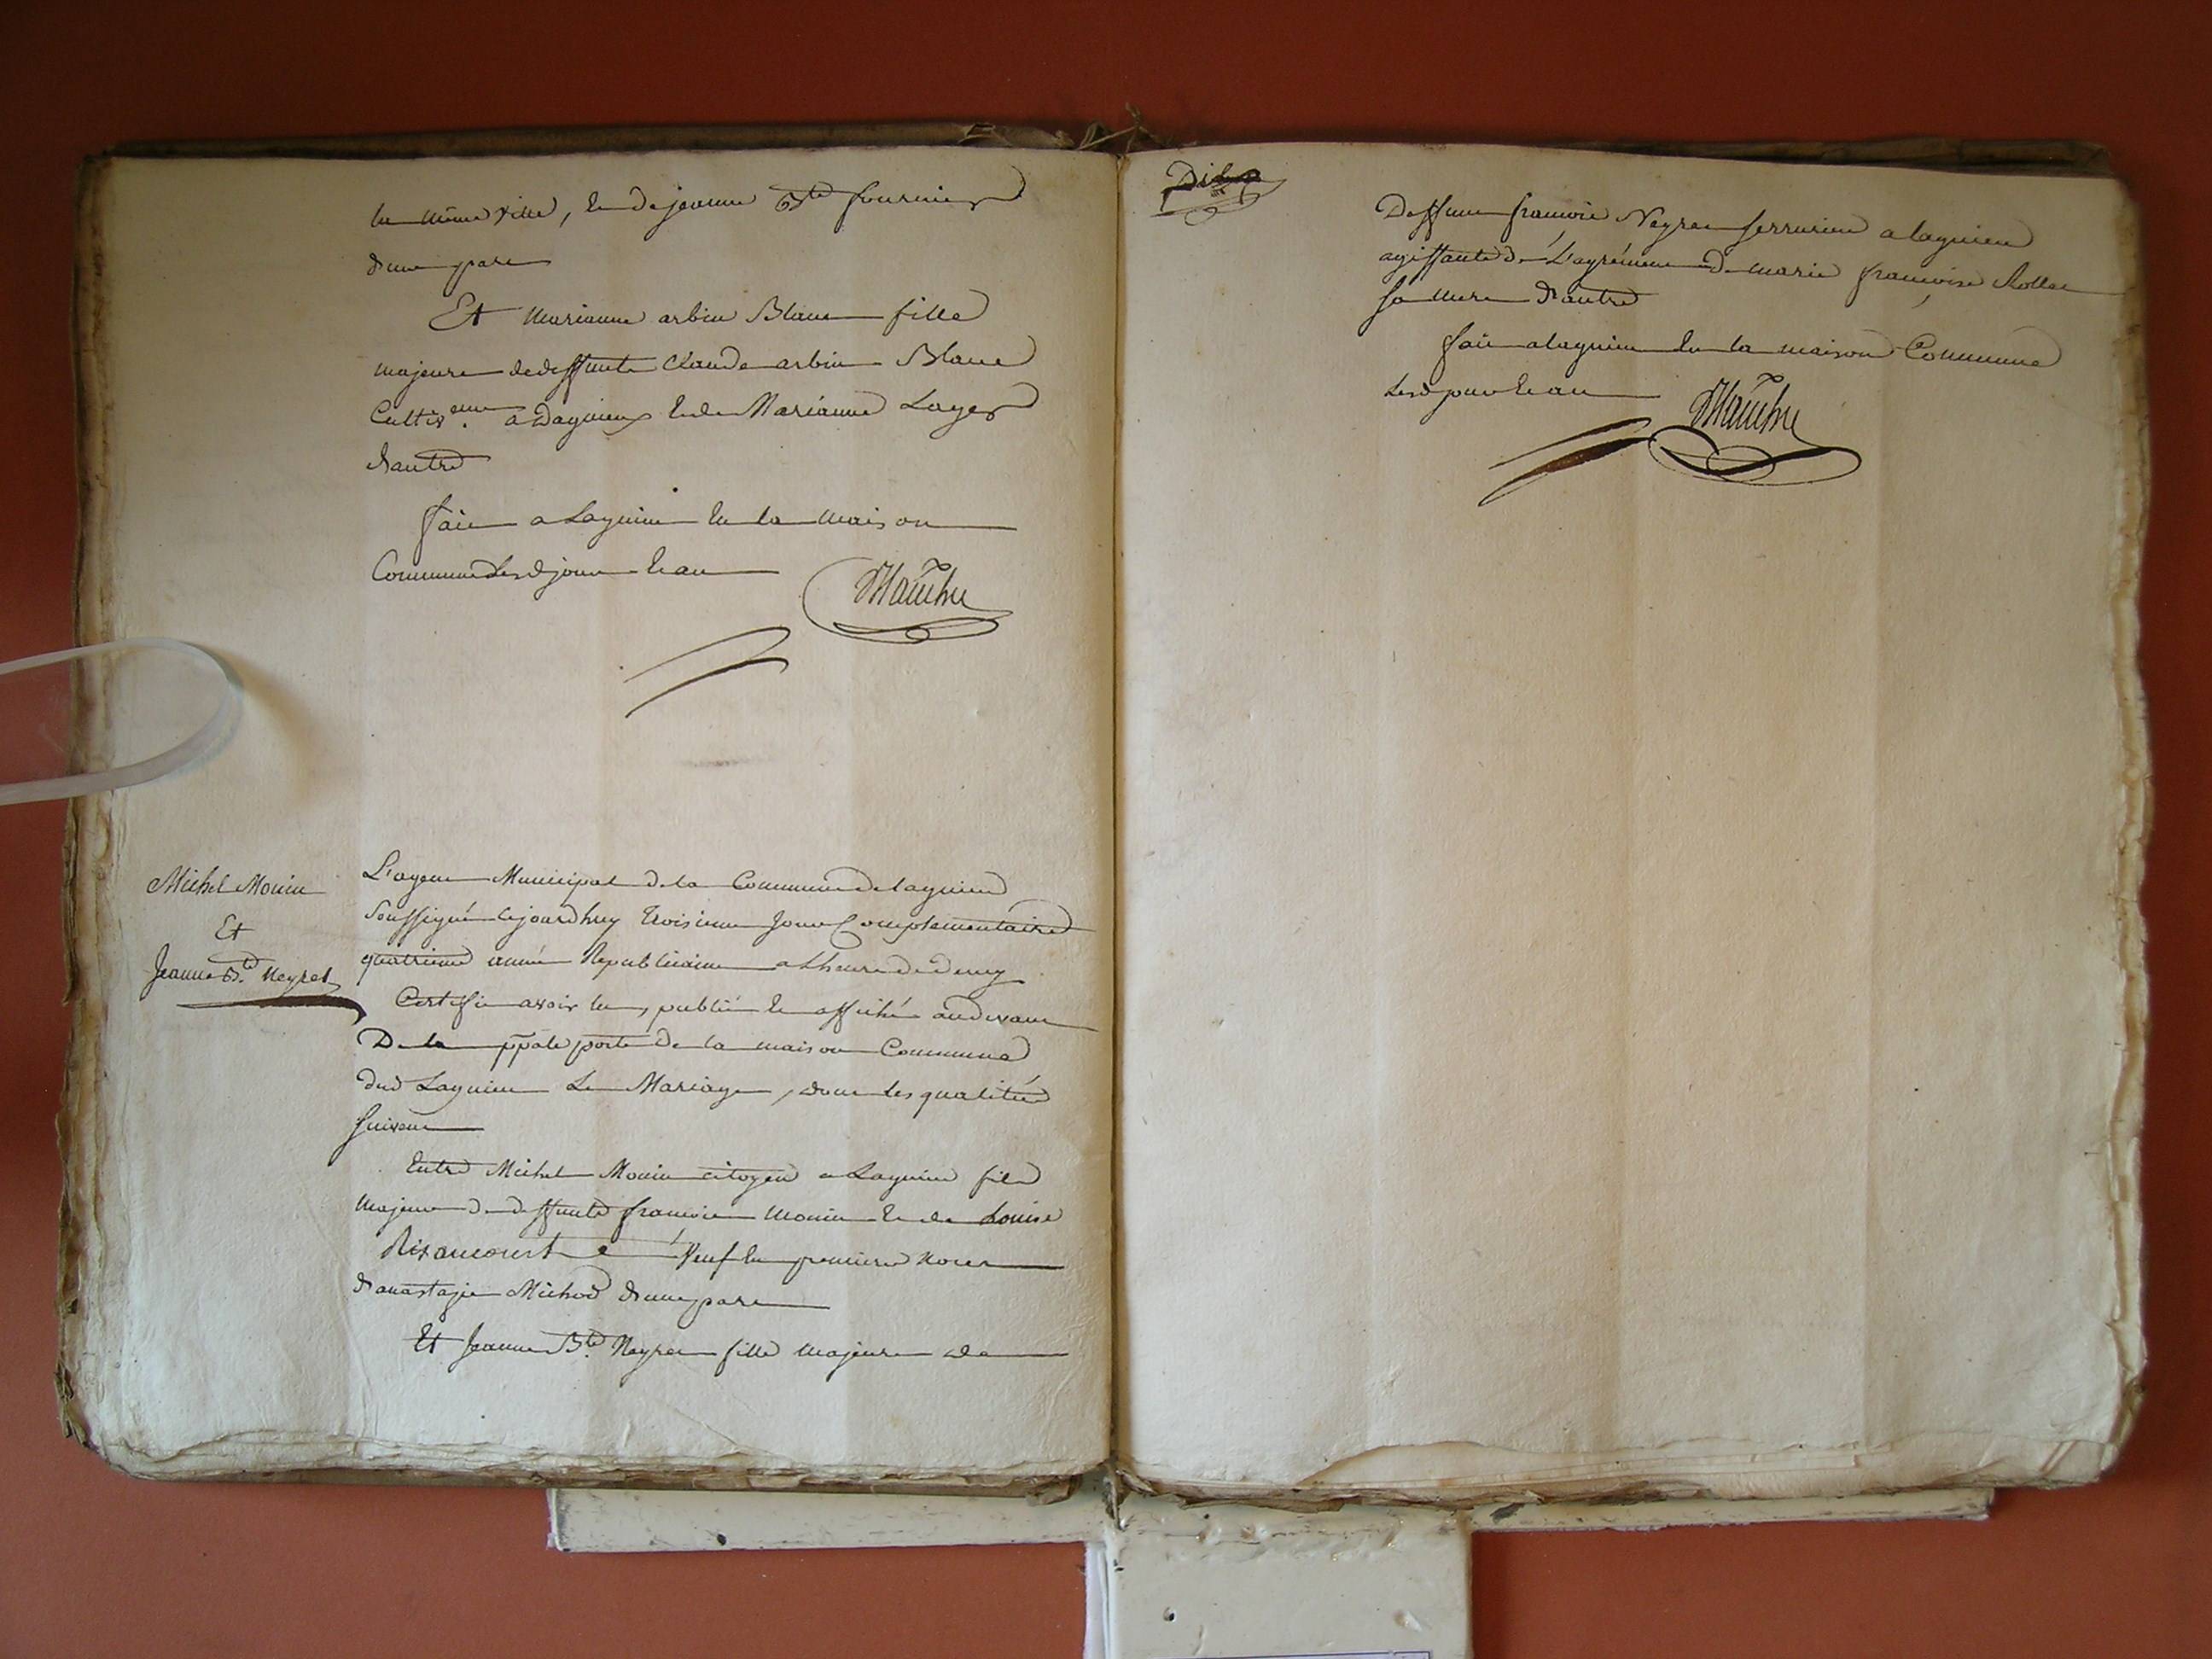 la même ville, et de jeanne Bte fournier
d'une part
Et Marianne arbin Blanc fille
majeure de deffunt Claude arbin Blanc
Cultivr. a Dagnieux et de Marianne Layer
d'autre
fait a Lagnieu en la maison
Commune lesd jour et an
Michel Monin
Et
Jeanne Bte Neyret
L'agent Municipal de la Commune de lagnieu
soussigné cejourdhuy troisieme jour Complementaire
quatrieme année Republicaine a l'heure de
Certiffie avoir lu, publié et affiché audevant
De la ppale porte de la maison Commune
dud Lagnieu le Mariage, dont les qualités
suivent
Entre Michel Monin citoyen a Lagnieu fils
majeur de deffunt francois Monin et de Louise
veuf en premiere noces
d'anastazie Michod d'une part
Et Jeanne Bte Neyret fille majeure de
Deffunt francois Neyret serrurier a lagnieu
agissante de L'agrément de marie françoise Rollet
sa mere d'autre
fait a lagnieu en la maison Commune
lesd jour et an